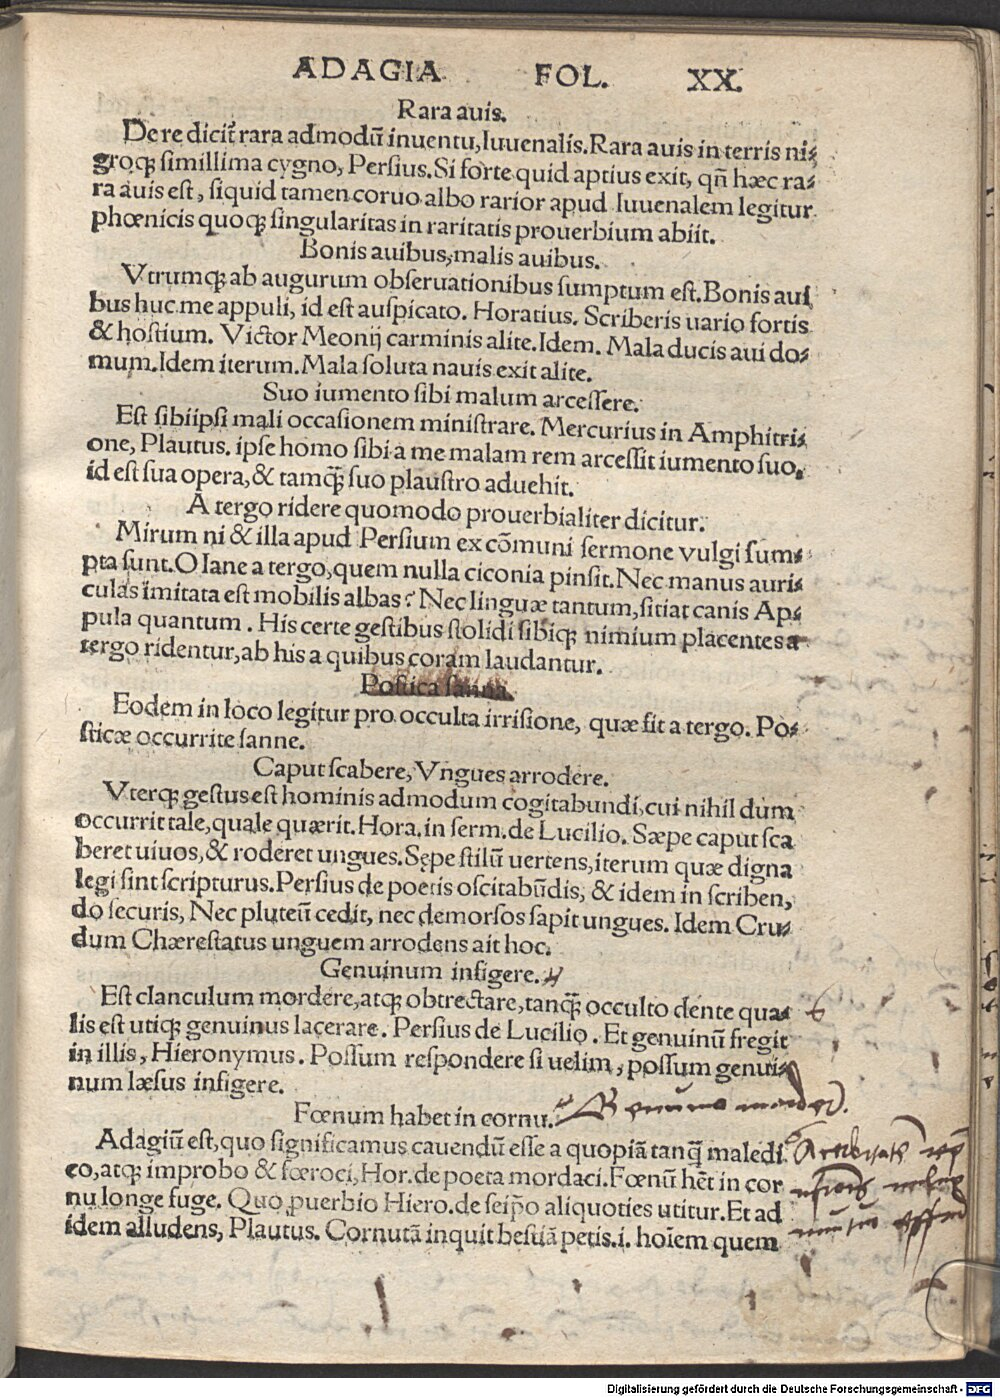 ADAGIA. FOL. XX.
Rara auis.
De re dicit̃ rara admodũ inuentu, Iuuenalis. Rara auis in terris ni⸗
groqꝫ simillima cygno, Persius. Si forte quid aptius exit, qñ hæc ra⸗
ra auis est, siquid tamen coruo albo rarior apud Iuuenalem legitur
phœnicis quoqꝫ singularitas in raritatis prouerbium abiit.
Bonis auibus, malis auibus.
Vtrumqꝫ ab augurum obseruationibus sumptum est. Bonis aui
bus huc me appuli, id est auspicato. Horatius. Scriberis uario fortis
& hostium. Victor Meonij carminis alite. Idem. Mala ducis aui do⸗
mum. Idem iterum. Mala soluta nauis exit alite.
Suo iumento sibi malum arcessere.
Est sibiipsi mali occasionem ministrare. Mercurius in Amphitri⸗
one, Plautus. ipse homo sibi a me malam rem arcessit iumento suo.
id est sua opera, & tamqꝫ̃ suo plaustro aduehit.
A tergo ridere quomodo prouerbialiter dicitur.
Mirum ni & illa apud Persium ex cõmuni sermone vulgi sum⸗
pta sunt. O Iane a tergo, quem nulla ciconia pinsit. Nec manus auri⸗
culas imitata est mobilis albas? Nec linguæ tantum, sitiat canis Ap⸗
pula quantum. His certe gestibus stolidi sibiqꝫ nimium placentes a
tergo ridentur, ab his a quibus coram laudantur.
Postica sanna.
Eodem in loco legitur pro occulta irrisione, quæ fit a tergo. Po⸗
sticæ occurrite sanne.
Caput scabere, Vngues arrodere.
Vterqꝫ gestus est hominis admodum cogitabundi, cui nihil dum
occurrit tale, quale quærit. Hora. in serm. de Lucilio. Sæpe caput sca
beret uiuos, & roderet ungues. Sępe stilũ uertens, iterum quæ digna
legi sint scripturus. Persius de poetis oscitabũdis, & idem in scriben,
do securis, Nec pluteũ cedit, nec demorsos sapit ungues. Idem Cru⸗
dum Chærestatus unguem arrodens ait hoc.
Genuinum infigere.
Est clanculum mordere, atqꝫ obtrectare, tanqꝫ̃ occulto dente qua⸗
lis est utiqꝫ genuinus lacerare. Persius de Lucilio. Et genuinũ fregit
in illis, Hieronymus. Possum respondere si uelim, possum genui⸗
num læsus infigere.
Fœnum habet in cornu.
Adagiũ est, quo significamus cauendũ esse a quopiã tanqꝫ̃ maledi
co, atqꝫ improbo & fœroci, Hor. de poeta mordaci. Fœnũ hẽt in cor
nu longe fuge. Quo ꝓuerbio Hiero. de seip̃o aliquoties utitur. Et ad
idem alludens, Plautus. Cornutã inquit bestiã petis .i. hoĩem quem
Digitalisierung gefördert durch die Deutsche Forschungsgemeinschaft - DFG